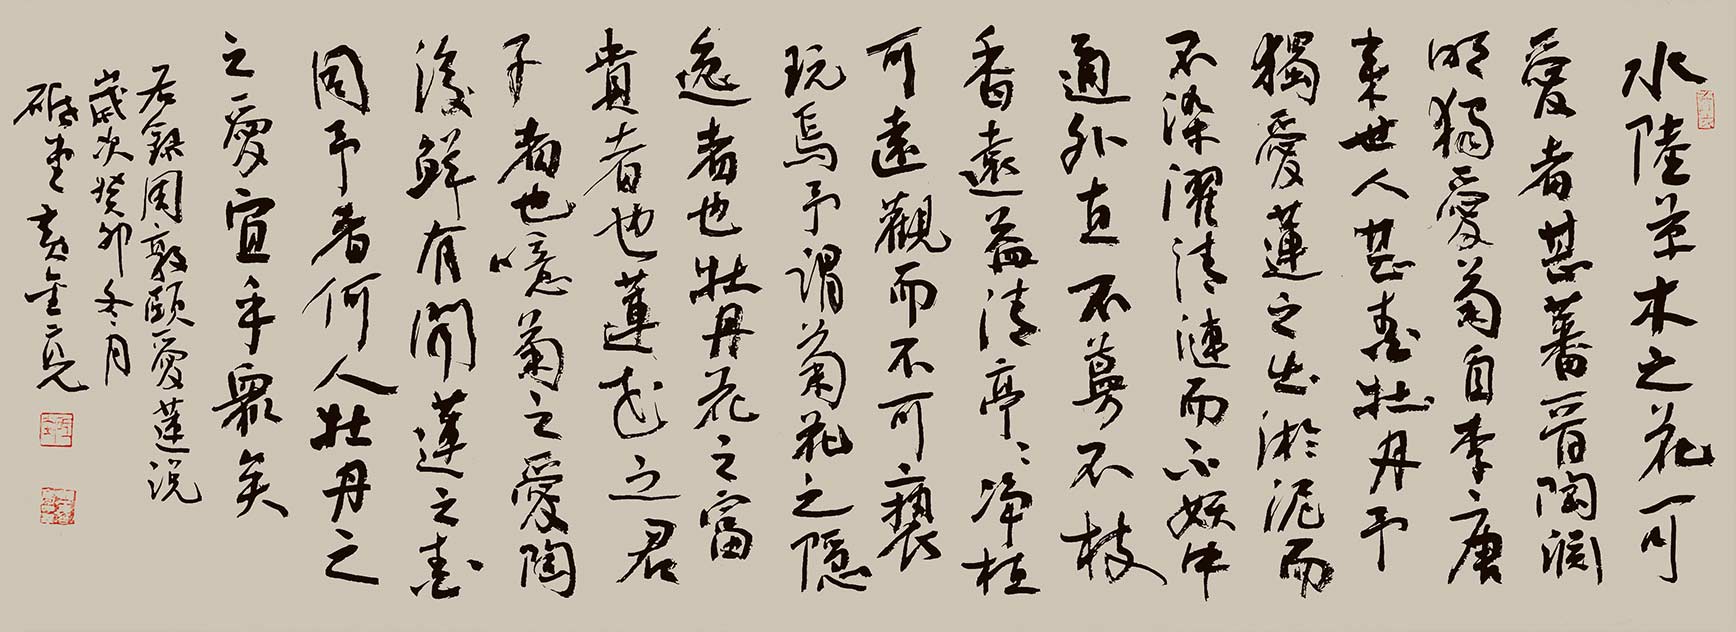 水陸草木之花可
愛者甚蕃晉陶淵
明獨愛菊自李唐
来世人甚愛牡丹予
獨愛蓮之出淤泥而
不染濯清漣而不妖中
通外直不蔓不枝
香遠益清亭〻淨植
可遠觀而不可褻
玩焉予謂菊花之隱
逸者也牡丹花之富
貴者也蓮花之君
子者也噫菊之愛陶
後鮮有聞蓮之愛
同予者何人牡丹之
之愛宜乎眾矣
右錄周敦頤愛蓮说
歲次癸卯冬月
砥堂黄金亮